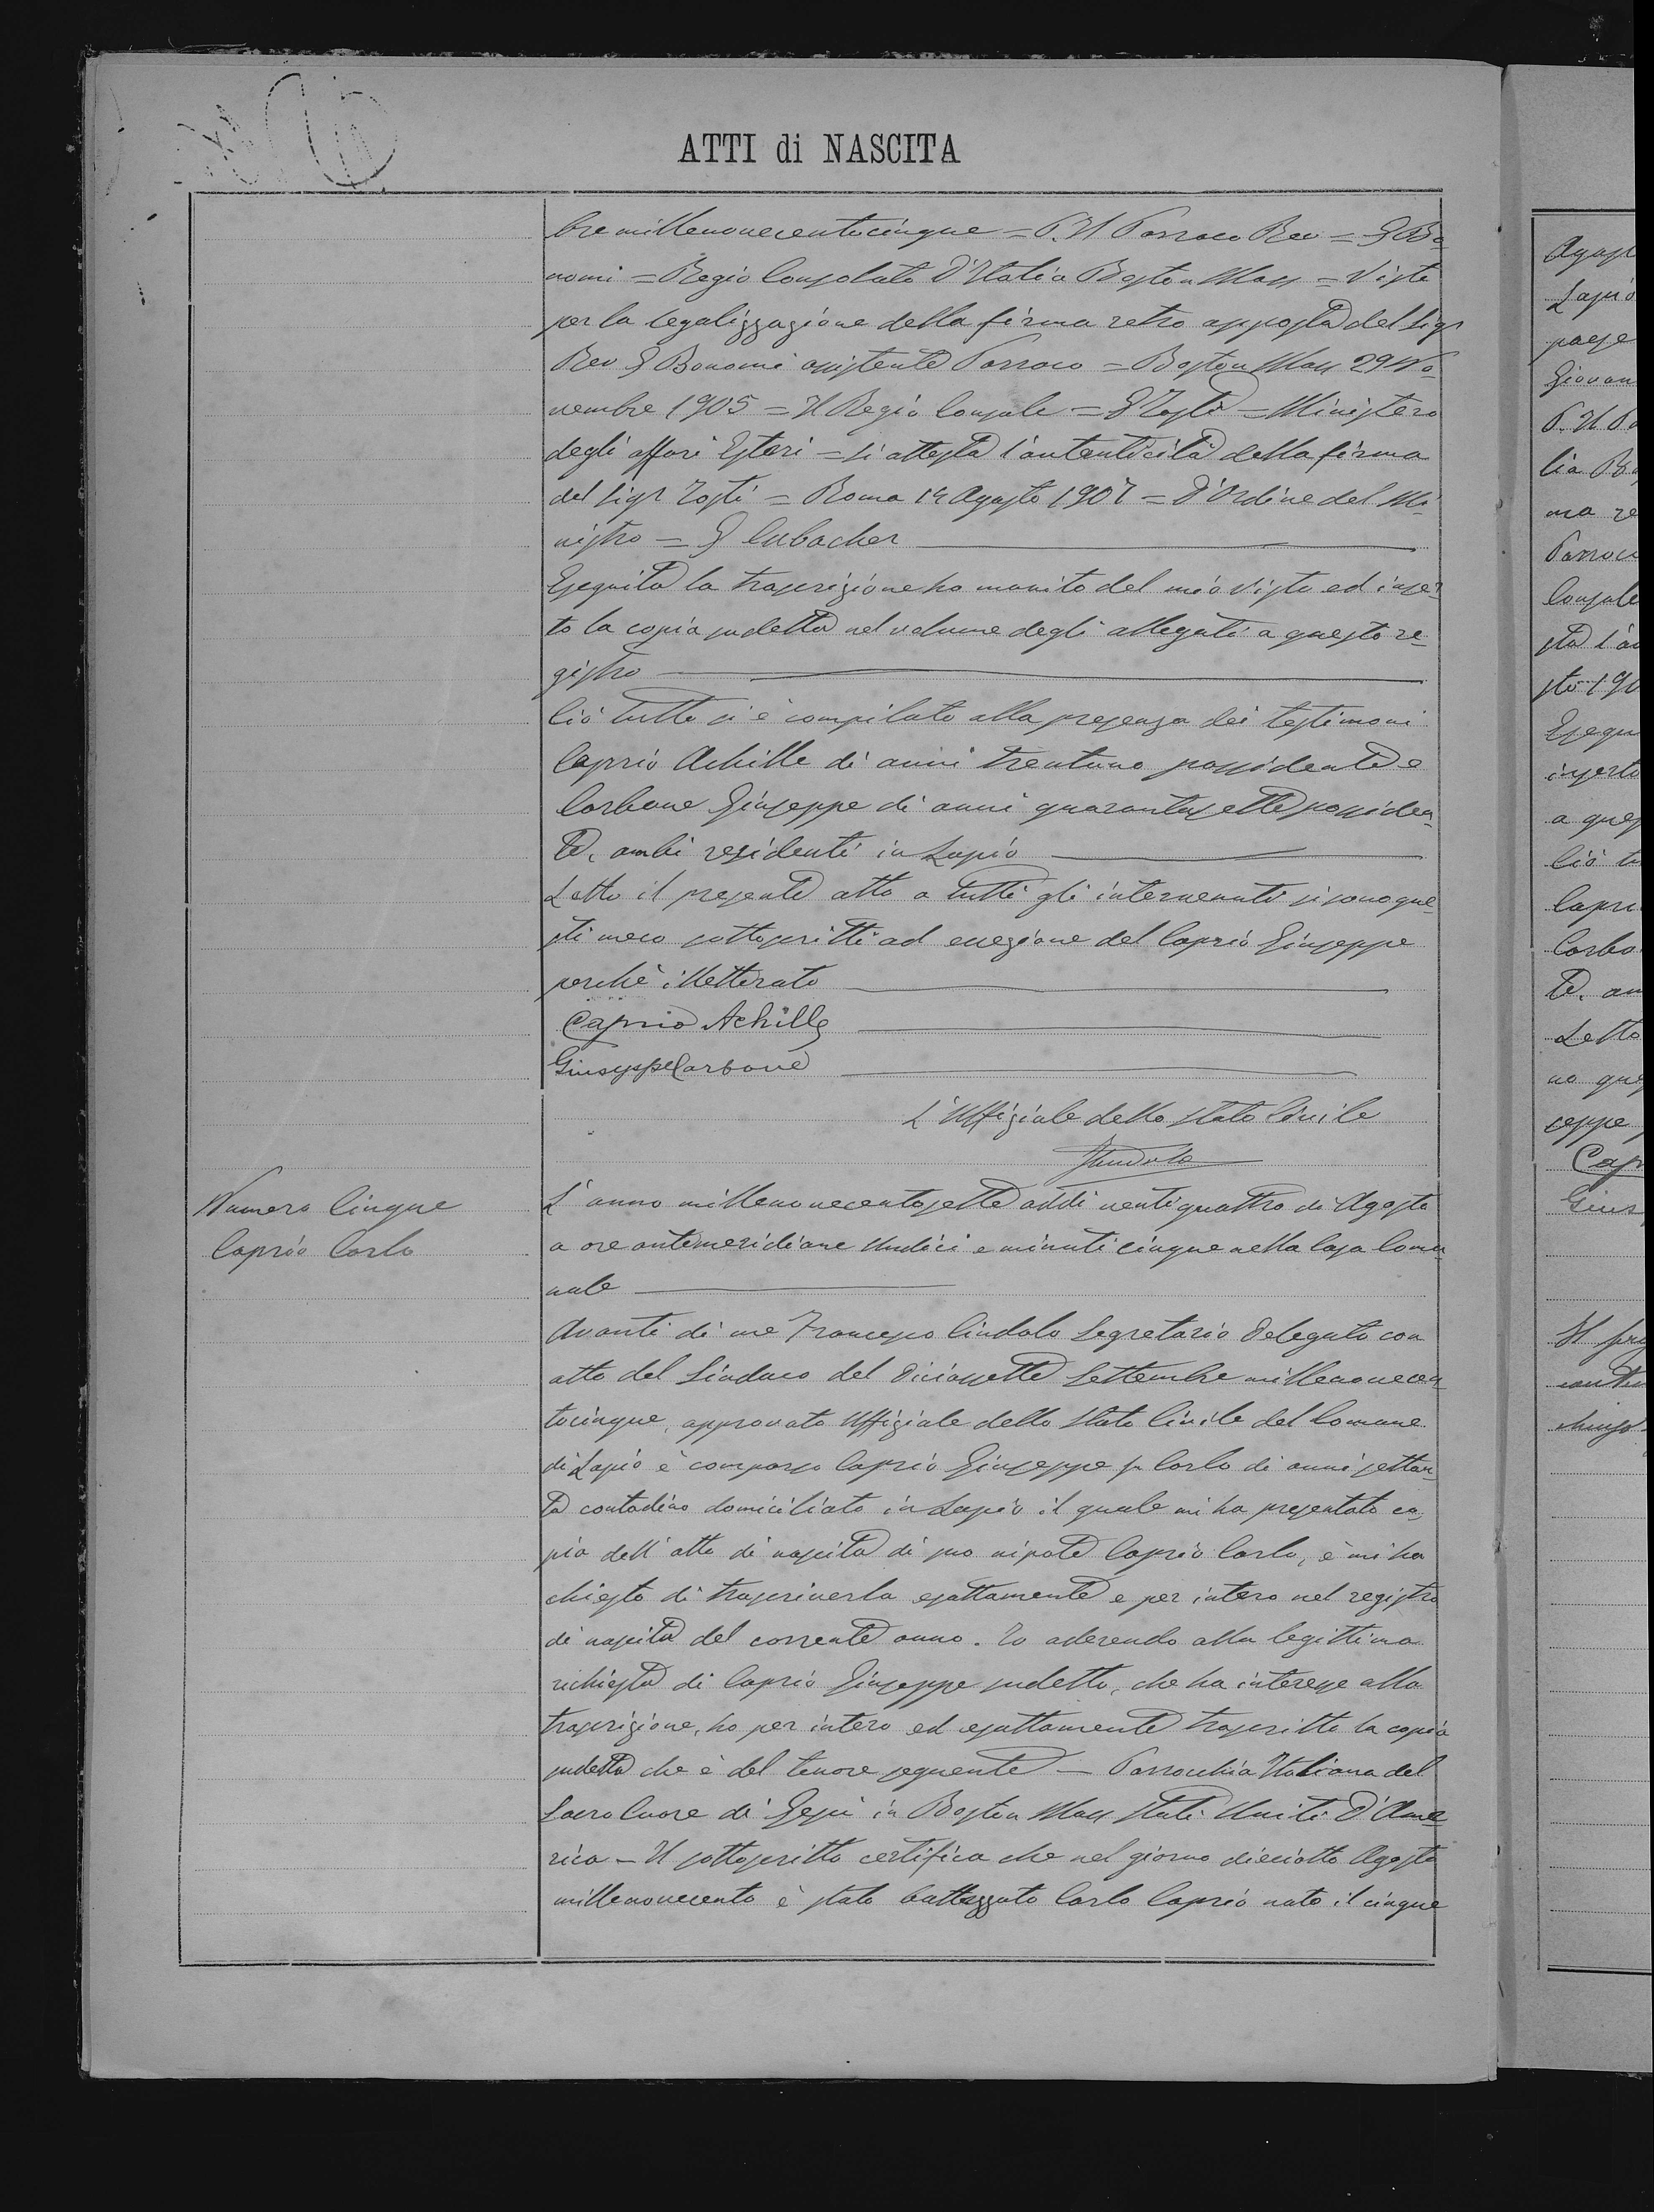 ATTI di NASCITA
bre millenovecentocinque = P. Il Parroco Rev = G Bo-
nomi = Regio Consolato D'Italia Boston Mass = Visto
per la legalizzazione della firma retro apposta del Sigr
Rev G Bonomi assistente Parroco = Boston Mass 29 No-
vembre 1905 = Il Regio Console = G Tosti = Ministero
degli affari Esteri = Si attesta l'autenticità della firma
del Sigr Tosti = Roma 14 Agosto 1907 = D'Ordine del Mi-
nistro = G
Eseguita la trascrizione ho munito del mio visto ed inser-
to la copia sudetta nel volume degli allegati a questo re-
gistro
Ciò tutto si è compilato alla presenza dei testimoni
Caprio Achille di anni trentuno possidente e
Carbone Giuseppe di anni quarantasette possiden-
te, ambi residenti in Lapio
Letto il presente atto a tutti gli intervenuti si sono que-
sti meco sottoscritti ad eccezione del Caprio Giuseppe
perchè illetterato
Caprio Achille
Giuseppe Carbone
L'Uffiziale dello Stato Civile
Numero Cinque
Caprio Carlo
L'anno millenovecentosette addì ventiquattro di Agosto
a ore antimeridiane undici e minuti cinque nella Casa Comu-
nale
Avanti di me Francesco Cindolo Segretario delegato con
atto del Sindaco del diciassette Settembre millenovecen-
tocinque, approvato Uffiziale dello Stato Civile del Comune
di Lapio è comparso Caprio Giuseppe fu Carlo di anni settan-
ta contadino domiciliato in Lapio il quale mi ha presentato co-
pia dell'atto di nascita di suo nipote Caprio Carlo, è mi ha
chiesto di trascriverla esattamente e per intero nel registro
di nascita del corrente anno. Io aderendo alla legittima
richiesta di Caprio Giuseppe sudetto, che ha interesse alla
trascrizione, ho per intero ed esattamente trascritto la copia
sudetta che è del tenore seguente = Parrocchia Italiana del
Sacro Cuore di Gesù in Boston Mass Stati Uniti D'Ame-
rica - Il sottoscritto certifica che nel giorno dieciotto Agosto
millenovecento è stato battezzato Carlo Caprio nato il cinque